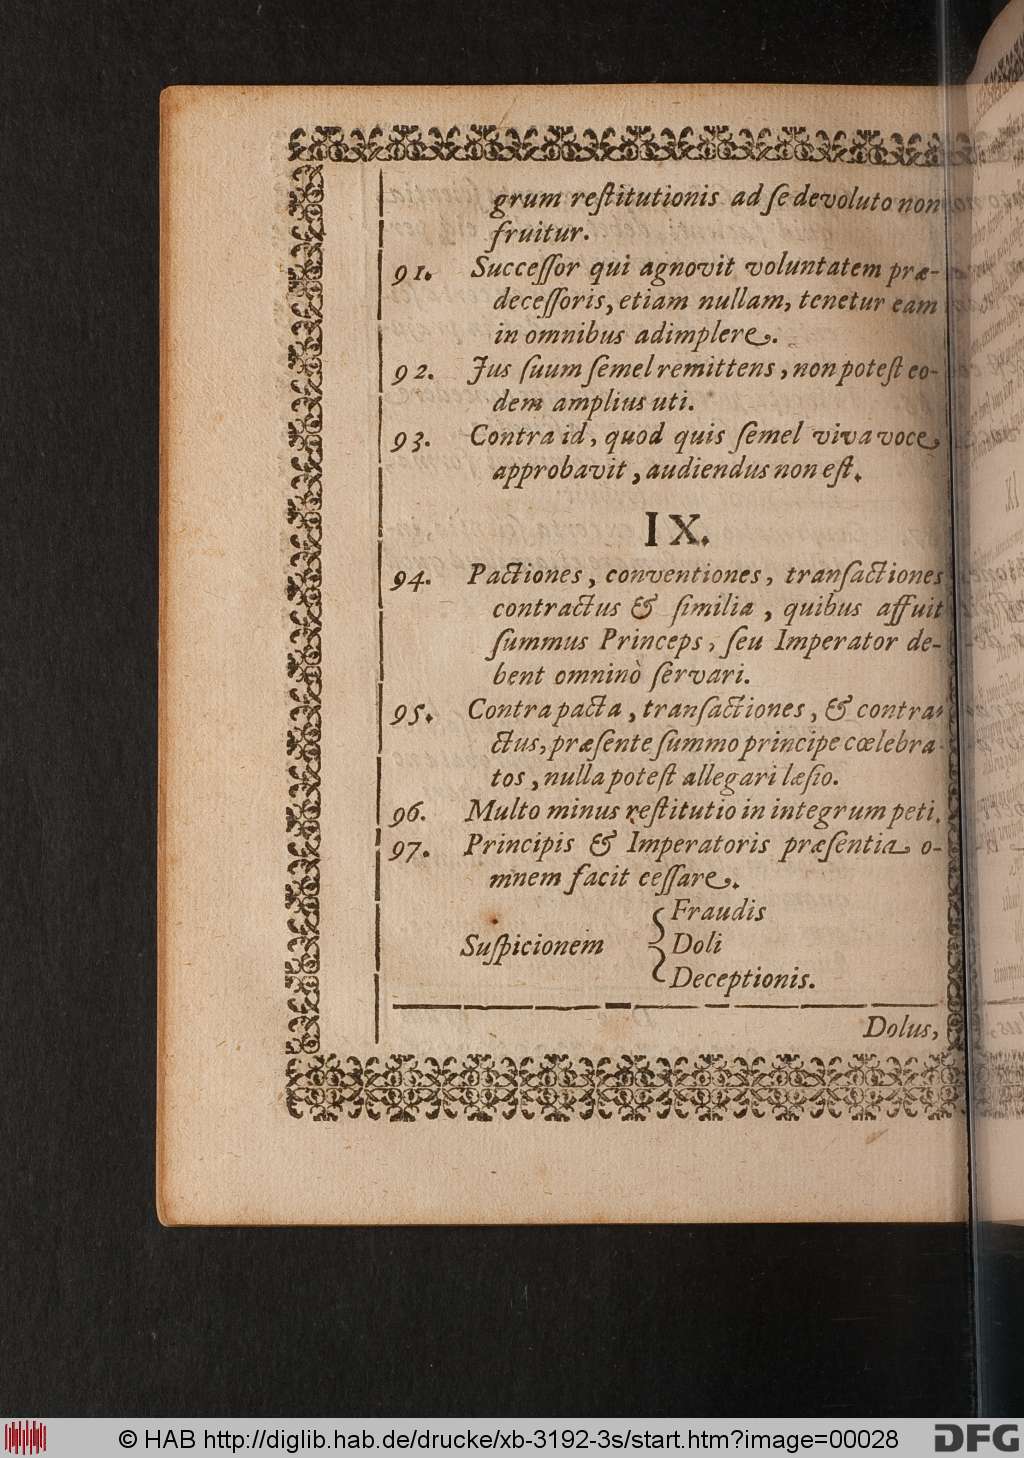 grum reſtitutionis ad ſe devoluto non
fruitur.
91. Succeſſor qui agnovit voluntatem præ-
deceſſoris, etiam nullam, tenetur eam
in omnibus adimplere.
92. Jus ſuum ſemel remittens, non poteſt eo-
dem amplius uti.
93. Contra id, quod quis ſemel viva voce
approbavit, audiendus non eſt.
IX.
94. Pactiones, conventiones, tranſactiones
contractus & ſimilia, quibus affuit
ſummus Princeps, ſeu Imperator de-
bent omninò ſervari.
95. Contra pacta, tranſactiones, & contra-
ctus, præſente ſummo principe cœlebra-
tos, nulla poteſt allegari læſio.
96. Multo minus reſtitutio in integrum peti.
97. Principis & Imperatoris præſentia o-
mnem facit ceſſare.
Fraudis
Suſpicionem { Doli
Deceptionis.
Dolus,
© HAB http://diglib.hab.de/drucke/xb-3192-3s/start.htm?image=00028
DFG